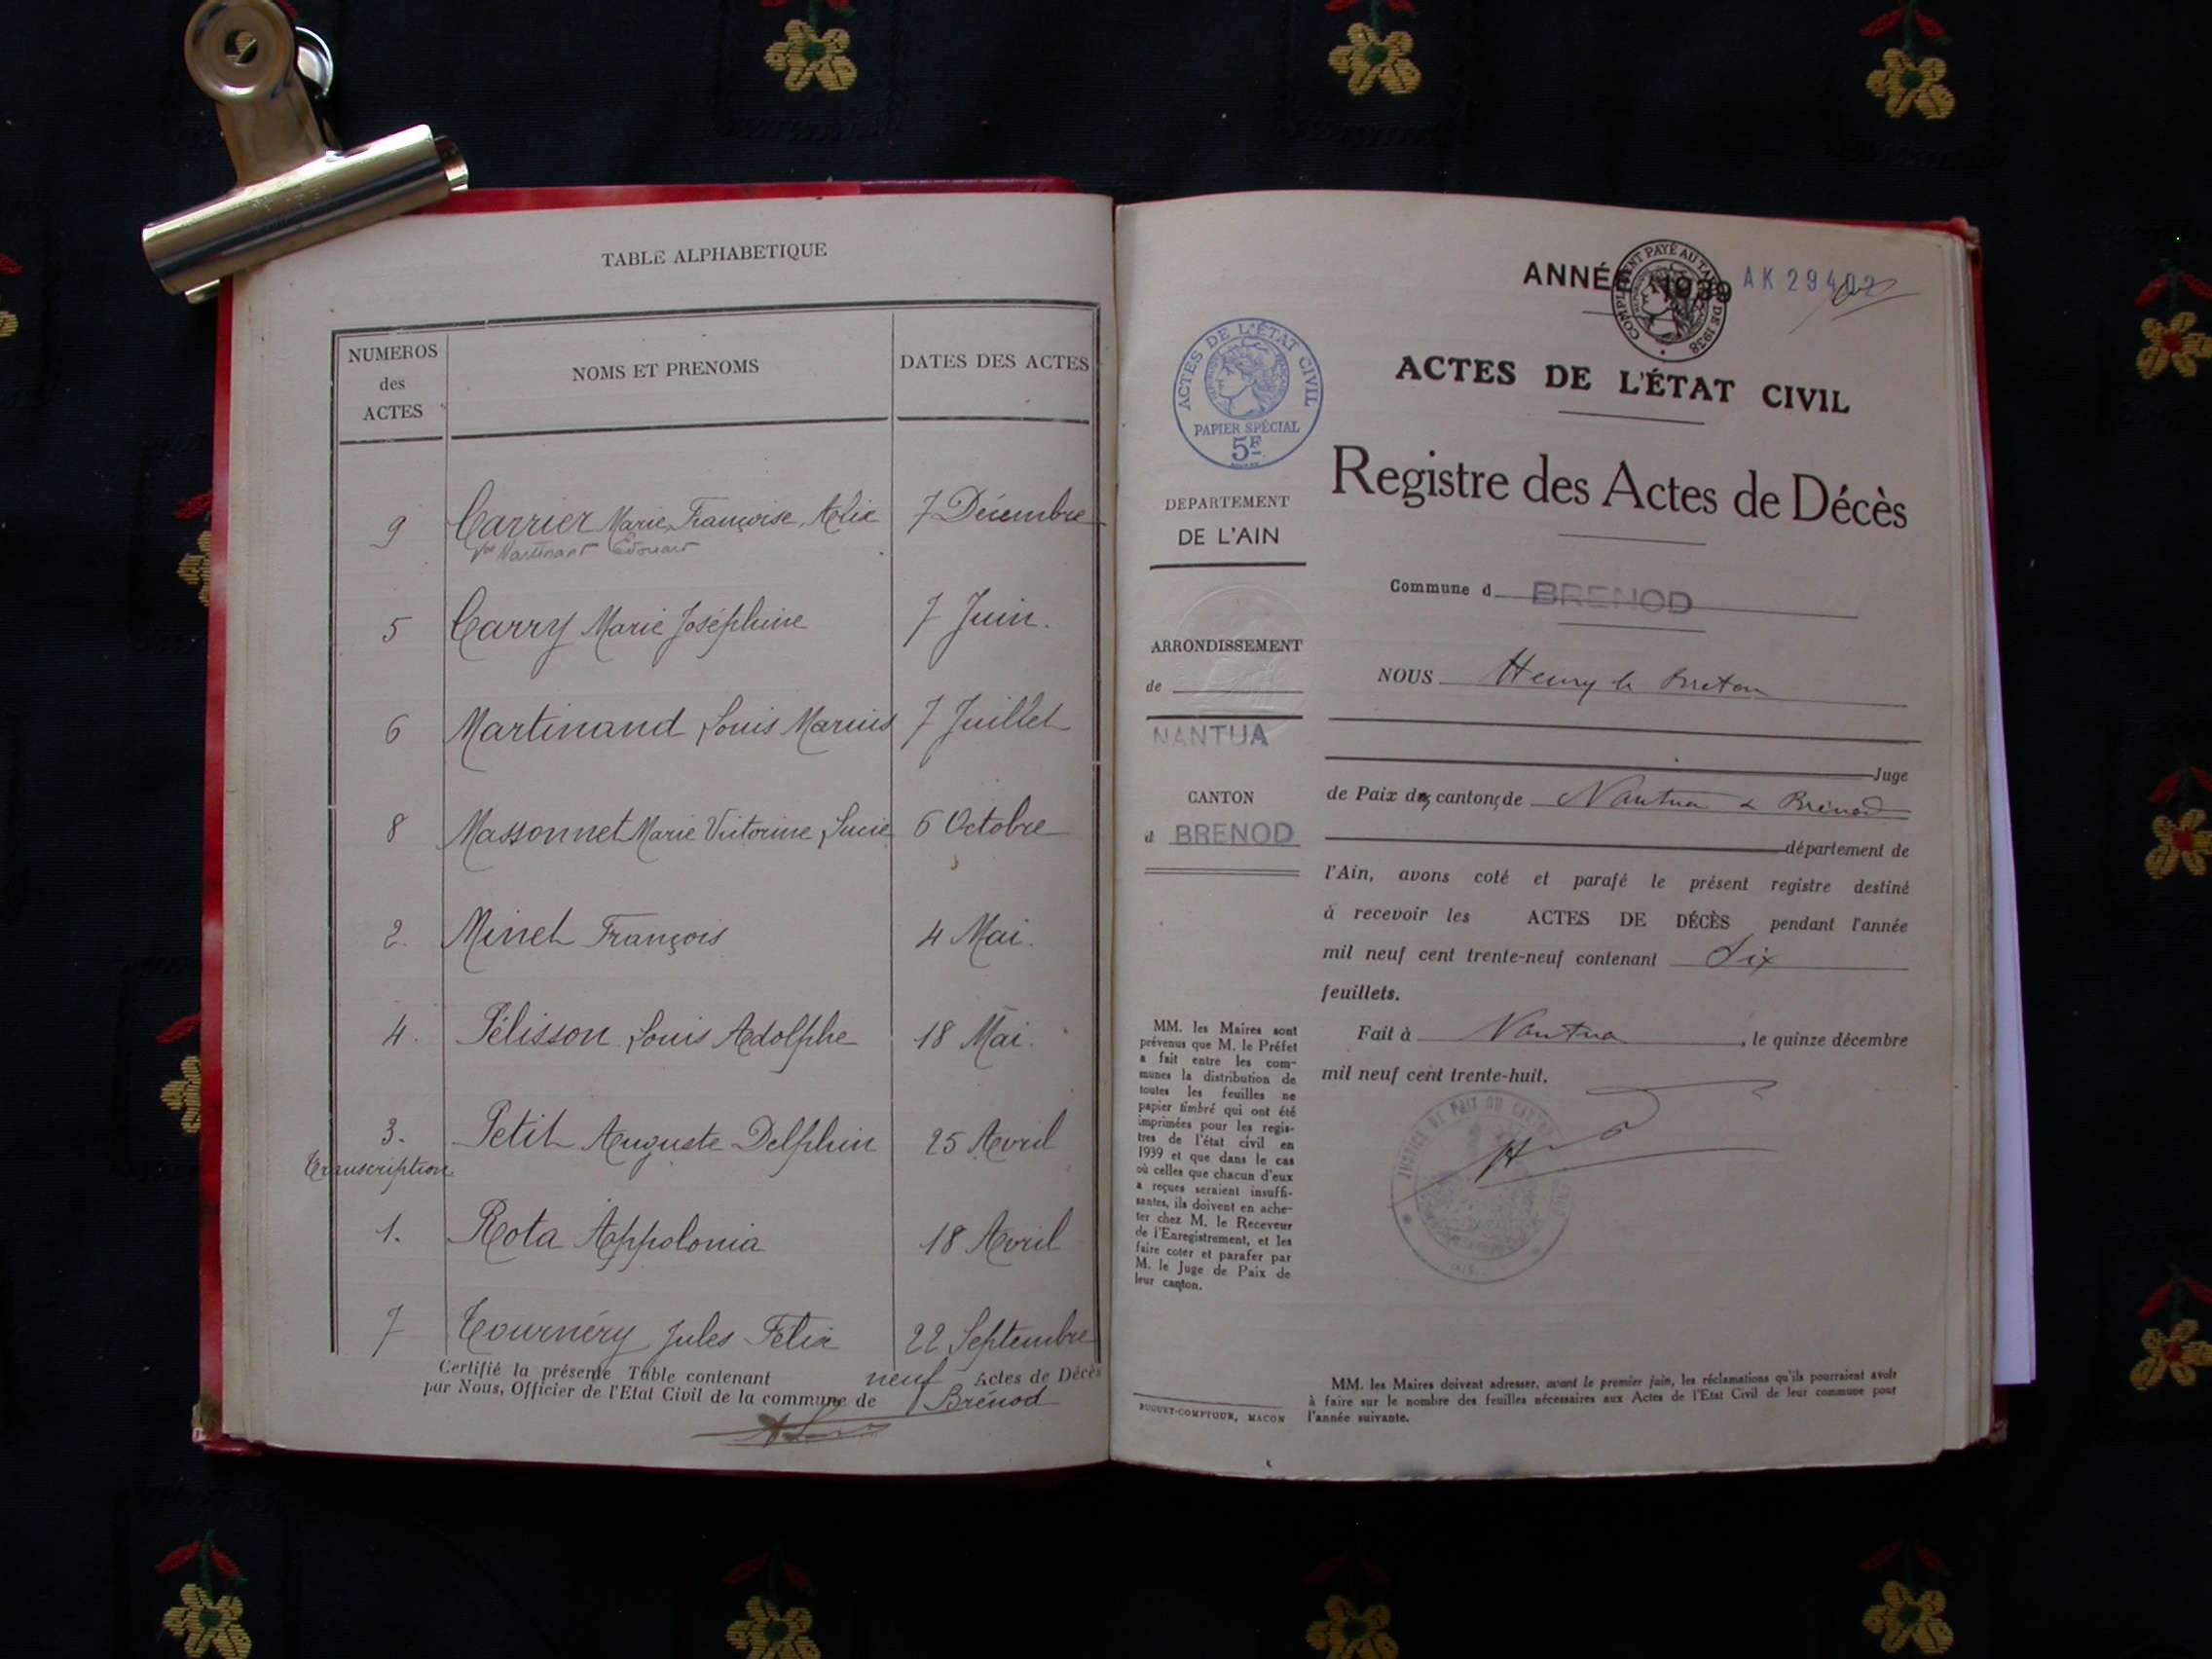 TABLE ALPHABETIQUE
NUMEROS
des
ACTES
NOMS ET PRENOMS
DATES DES ACTES
9 Carrier Marie Françoise Alix 7 Décembre
Vve Martinant Edouard
5 Carry Marie Joséphine 7 Juin.
6 Martinand Louis Marius 7 Juillet
8 Massonnet Marie Victorine Lucie 6 Octobre
2. Minet François 4 Mai.
4. Pélisson Louis Adolphe 18 Mai.
3. Petit Auguste Delphin 25 Avril
transcription
1. Rota Appolonia 18 Avril
7 Tournéry Jules Félix 22 Septembre
Certifié la présente Table contenant neuf Actes de Décès
par Nous, Officier de l'Etat Civil de la commune de Brénod
ANNÉE 1939 AK 29402
COMPLEMENT PAYÉ AU TARIF DE 1938
ACTES DE L'ÉTAT CIVIL
PAPIER SPÉCIAL
5F
ACTES DE L'ÉTAT CIVIL
Registre des Actes de Décès
DEPARTEMENT
DE L'AIN
Commune d BRENOD
ARRONDISSEMENT
de
NANTUA
CANTON
d BRENOD
NOUS Henry le Breton
Juge
de Paix des cantons de Nantua & Brénod
département de
l'Ain, avons coté et parafé le présent registre destiné
à recevoir les ACTES DE DÉCÈS pendant l'année
mil neuf cent trente-neuf contenant Six
feuillets.
Fait à Nantua, le quinze décembre
mil neuf cent trente-huit.
JUSTICE DE PAIX DU CANTON
MM. les Maires sont
prévenus que M. le Préfet
a fait entre les com-
munes la distribution de
toutes les feuilles de
papier timbré qui ont été
imprimées pour les regis-
tres de l'état civil en
1939 et que dans le cas
où celles que chacun d'eux
a reçues seraient insuffi-
santes, ils doivent en ache-
ter chez M. le Receveur
de l'Enregistrement, et les
faire coter et parafer par
M. le Juge de Paix de
leur canton.
BUGUET-COMPTOUR, MACON
MM. les Maires doivent adresser, avant le premier juin, les réclamations qu'ils pourraient avoir
à faire sur le nombre des feuilles nécessaires aux Actes de l'Etat Civil de leur commune pour
l'année suivante.